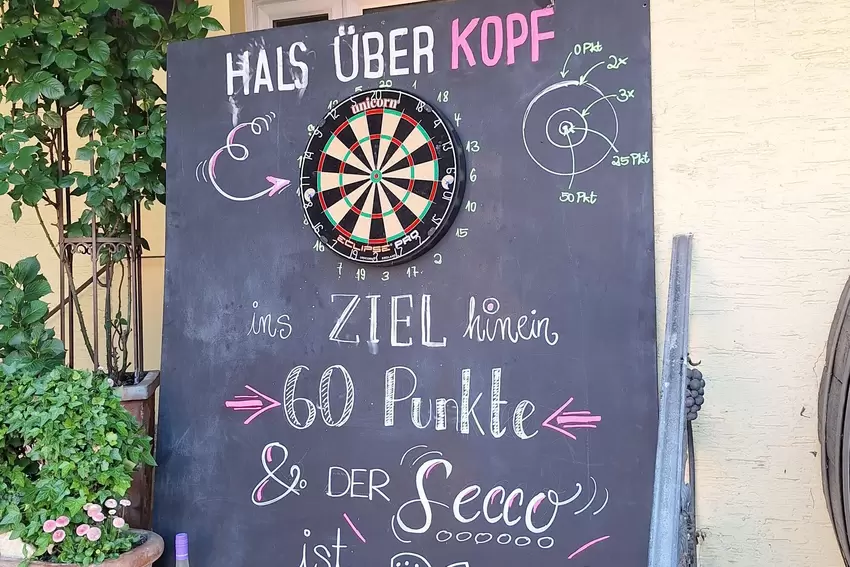 HALS ÜBER KOPF
0 Pkt
2x
3x
25 Pkt
50 Pkt
unicorn
ECLIPSE PRO
20 1 18 4 13 6 10 15 2 17 3 19 7 16
ins ZIEL hinein
60 Punkte
& DER Secco
ist